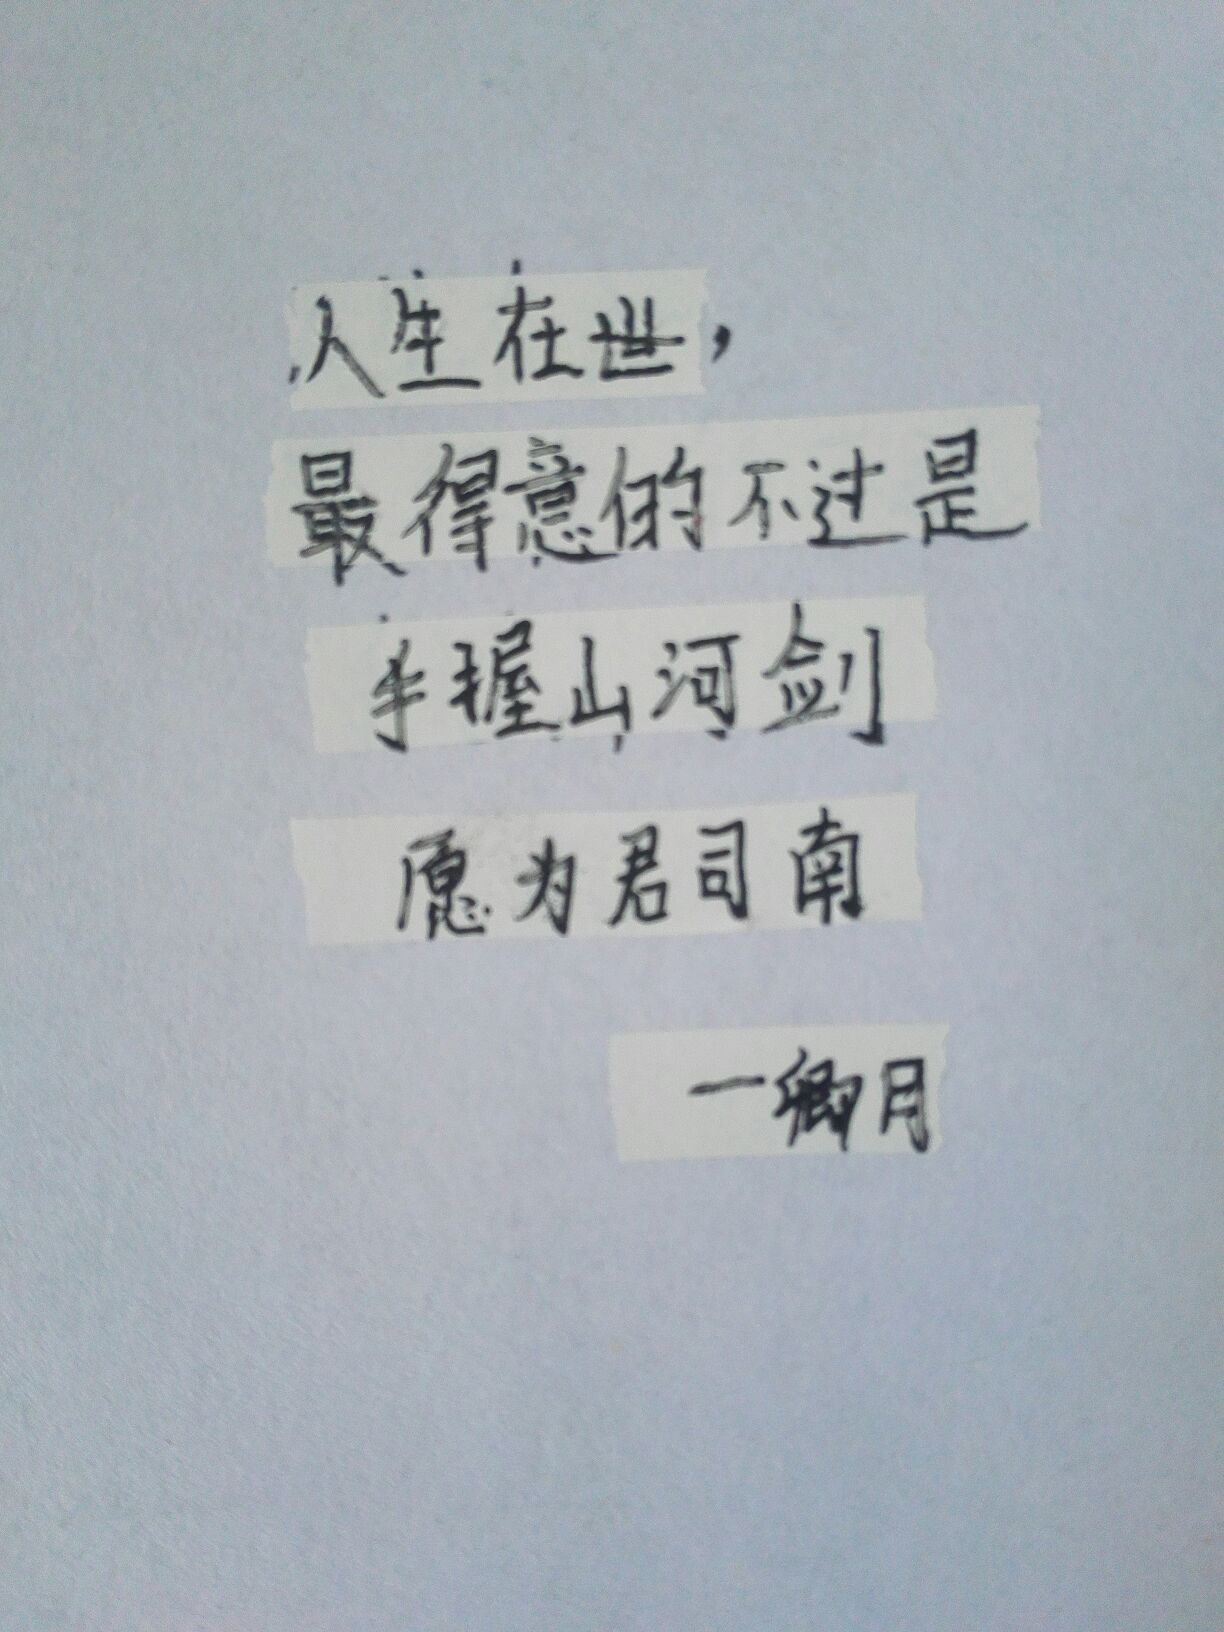 人生在世，
最得意的不过是
手握山河剑
愿为君司南
一卿月